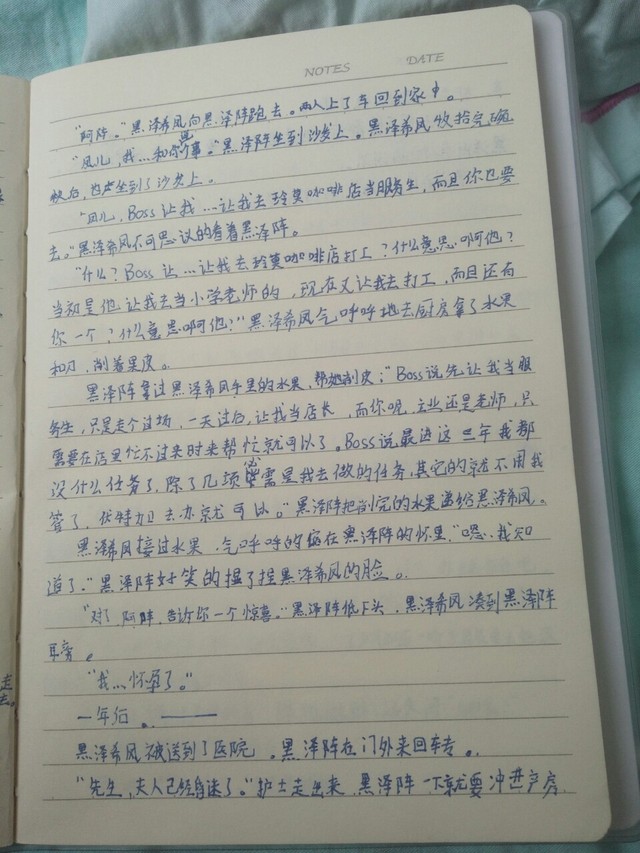 NOTES DATE
"阿阵。"黑泽希风向黑泽阵跑去。两人上了车回到家中。
"风儿,我…和你说事。"黑泽阵坐到沙发上。黑泽希风收拾完碗
筷后,也坐到了沙发上。
"风儿,Boss让我…让我去玲莫咖啡店当服务生,而且你也要
去。"黑泽希风不可思议的看着黑泽阵。
"什么?Boss让…让我去玲莫咖啡店打工?什么意思啊他?
当初是他让我去当小学老师的,现在又让我去打工,而且还有
你一个?什么意思啊他?"黑泽希风气呼呼地去厨房拿了水果
和刀,削着果皮。
黑泽阵拿过黑泽希风手里的水果,帮她削皮:"Boss说先让我当服
务生,只是走个过场,一天过后,让我当店长,而你呢,主业还是老师,只
需要在店里忙不过来时来帮忙就可以了。Boss说最近这三年我都
没什么任务了,除了几项必需是我去做的任务,其它的就不用我
管了,伏特加去办就可以。"黑泽阵把削完的水果递给黑泽希风。
黑泽希风接过水果,气呼呼的窝在黑泽阵的怀里,"嗯,我知
道了。"黑泽阵好笑的捏了捏黑泽希风的脸。
"对了,阿阵,告诉你一个惊喜。"黑泽阵低下头,黑泽希风凑到黑泽阵
耳旁。
"我…怀孕了。"
一年后。——
黑泽希风被送到了医院。黑泽阵在门外来回车专。
"先生,夫人已经昏迷了。"护士走出来,黑泽阵一下就要冲进产房
走
去。